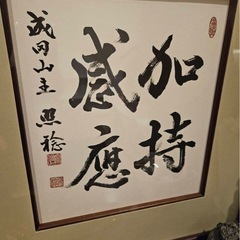 加持
感應
成田山主 照稔